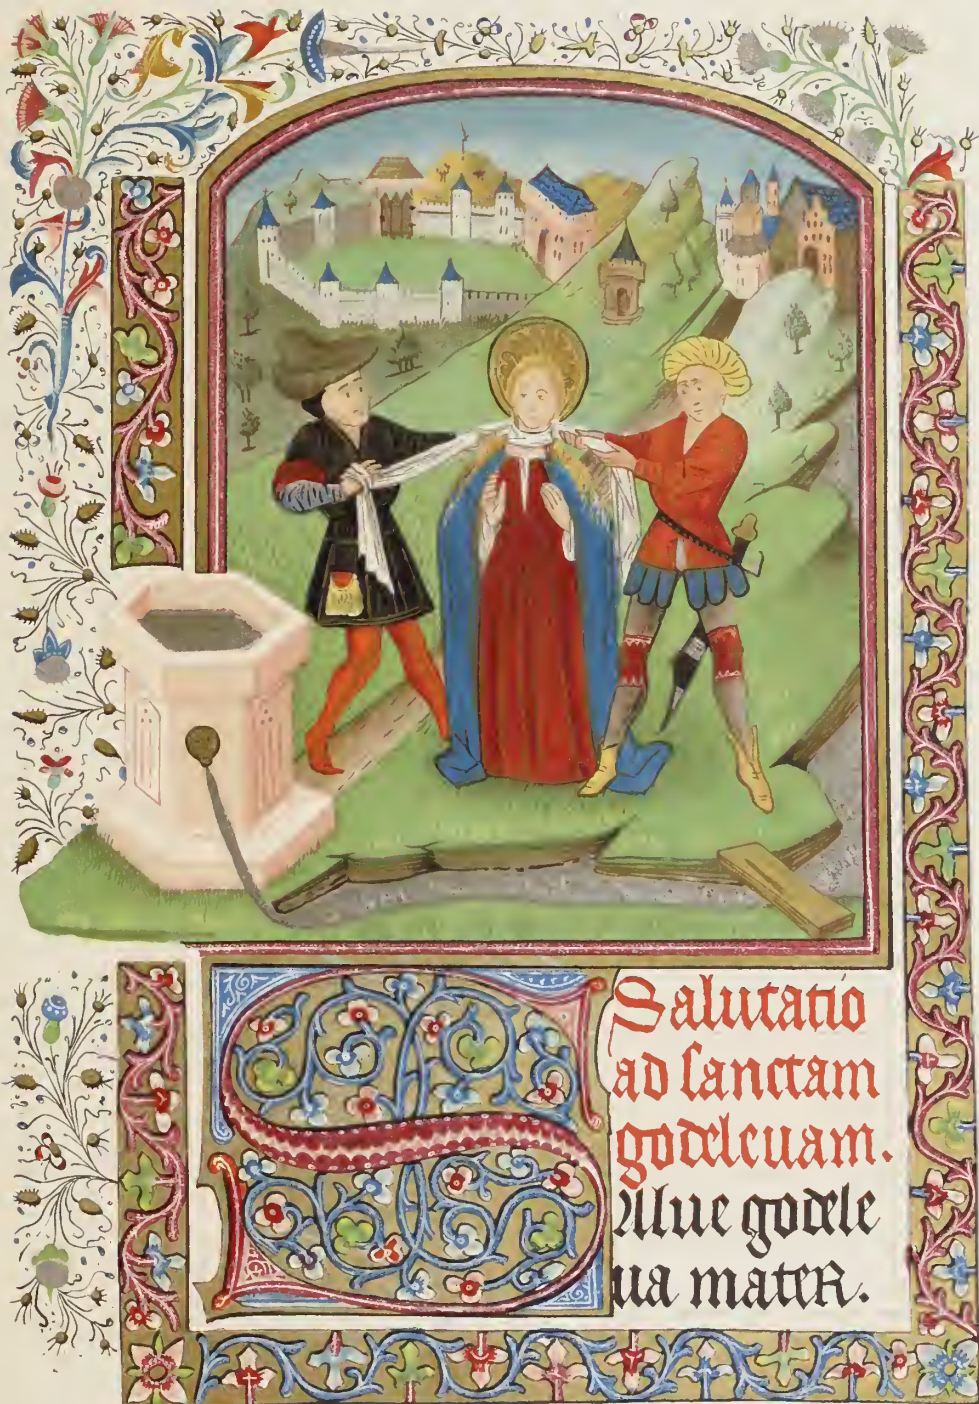 Salutatio
ad sanctam
godeleuam.
Salue godele
ua mater.